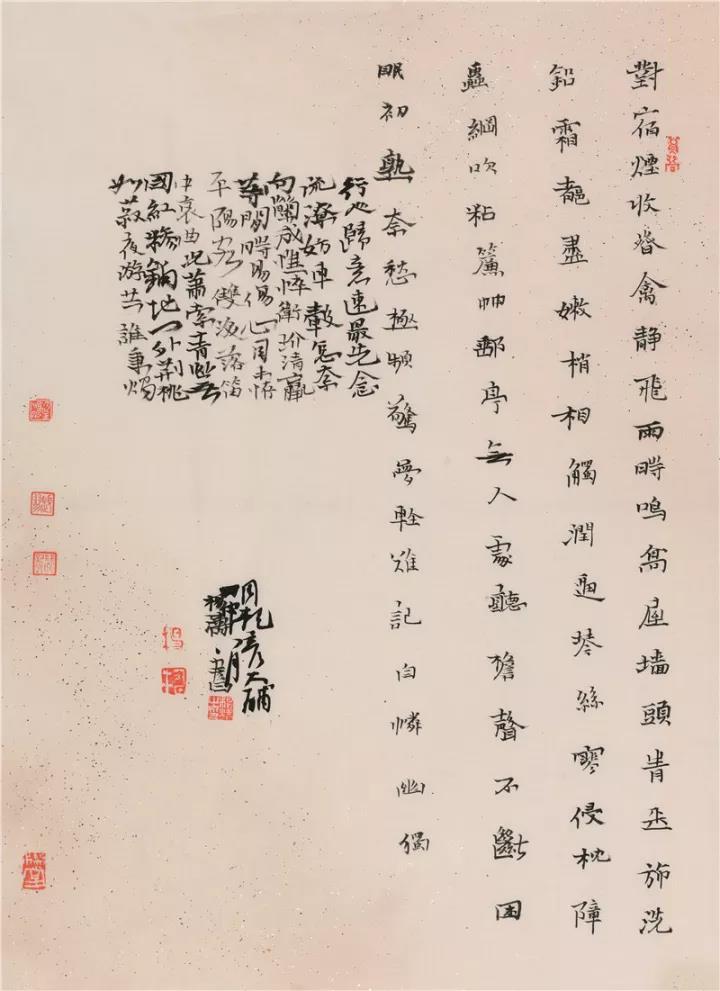 對宿煙收春禽静飛雨時鳴高屋墙頭青玉斾洗
鉛霜都盡嫩梢相觸潤逼琴絲寒侵枕障
蟲網吹粘簾竹郵亭無人處聽檐聲不斷困
眠初熟奈愁極頻驚夢輕難記自憐幽獨
行人歸意速最先念
流潦妨車轂怎奈
向蘭成憔悴衛玠清羸
等閒時易傷心目未怪
平陽客雙淚落笛
中哀曲况蕭索青蕪
國紅糝鋪地門外荊桃
如菽夜游共誰秉燭
周邦彥大酺
書